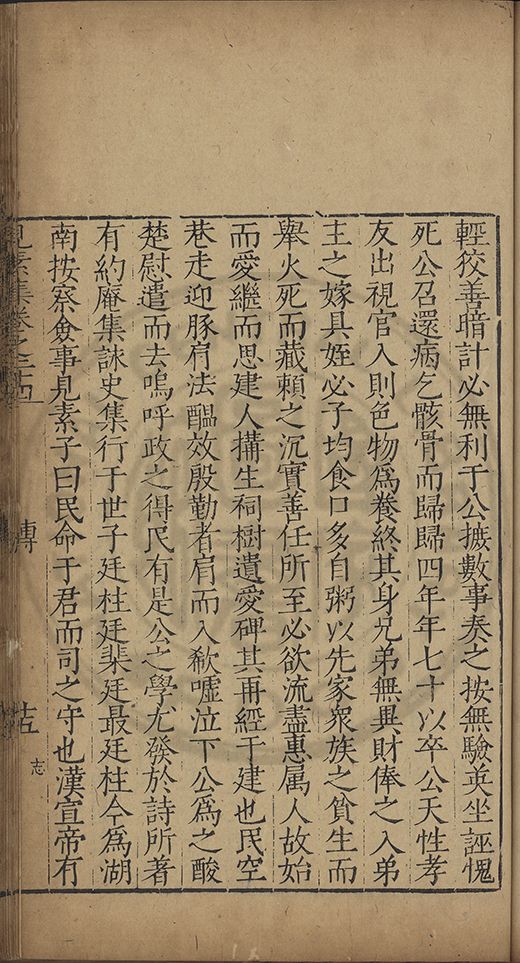 輕狡善暗計必無利于公摭數事奏之按無驗英坐誣愧
死公召還病乞骸骨而歸歸四年年七十以卒公天性孝
友出視官入則色物爲養終其身兄弟無異財俸之入弟
主之嫁具姪必子均食口多自粥以先家衆族之貧生而
舉火死而藏賴之沉實善任所至必欲流盡惠属人故始
而愛繼而思建人搆生祠樹遺愛碑其再經于建也民空
巷走迎豚肩法醖效殷勤者肩而入欷噓泣下公爲之酸
楚慰遣而去嗚呼政之得民有是公之學尤發於詩所著
有約庵集詠史集行于世子廷柱廷棐廷最廷柱今爲湖
南按察僉事見素子曰民命于君而司之守也漢宣帝有
見素集卷之二四
傳
志